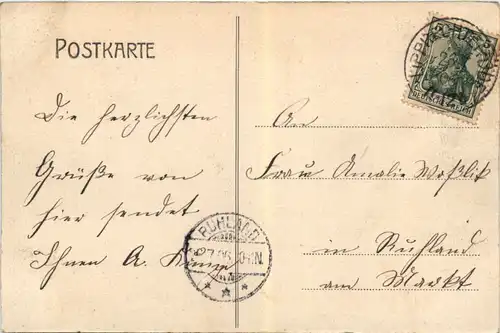 POSTKARTE
Die herzlichsten
Grüße von
hier sendet
Ihnen A.
An
Frau Amalie
in Ruhland
am Markt
RUHLAND